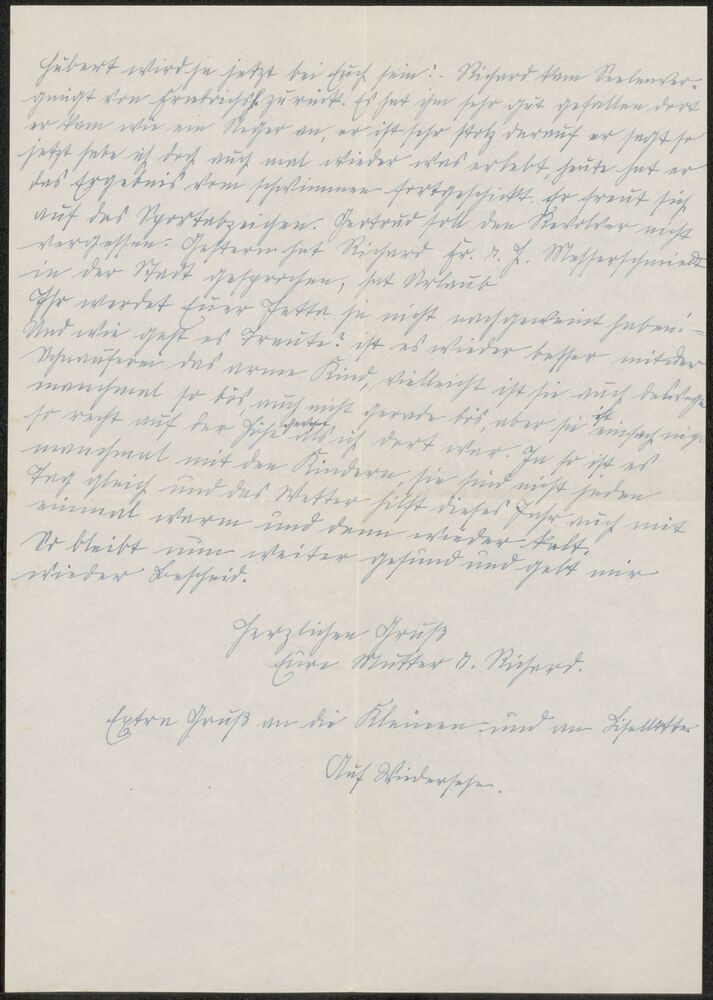 Hubert wird ja jetzt bei Euch sein? - Richard kam Seelenver-
gnügt von Friedrichsh. zurück. Es hat ihm sehr gut gefallen dort
er kam wie ein Neger an, er ist sehr stolz darauf er sagt so
jetzt habe ich doch auch mal wieder was erlebt, heute hat er
das Ergebnis vom schwimmen fortgeschickt. Er freut sich
auf das Sportabzeichen. Gertrud soll den Revolver nicht
vergessen. Gestern hat Richard Fr. H. Messerschmiedt
in der Stadt gesprochen, hat Urlaub
Ihr werdet Euer Jetta ja nicht nachgeweint haben! -
Und wie geht es Traute? ist es wieder besser mit der
das arme Kind, vielleicht ist sie auch deswege
manchmal so bös, auch nicht gerade bös, aber sie ist einfach nig
so recht auf der Höhe gewesen, als ich dort war. Ja so ist es
manchmal mit den Kindern, sie sind nicht jeden
Tag gleich und das Wetter hilft dieses Jahr auch mit
einmal warm und dann wieder kalt.
So bleibt nun weiter gesund und gebt mir
wieder Bescheid.
Herzlichen Gruß
Eure Mutter u. Richard.
Extra Gruß an die Kleinen und an Liselotte
Auf Wiedersehn.